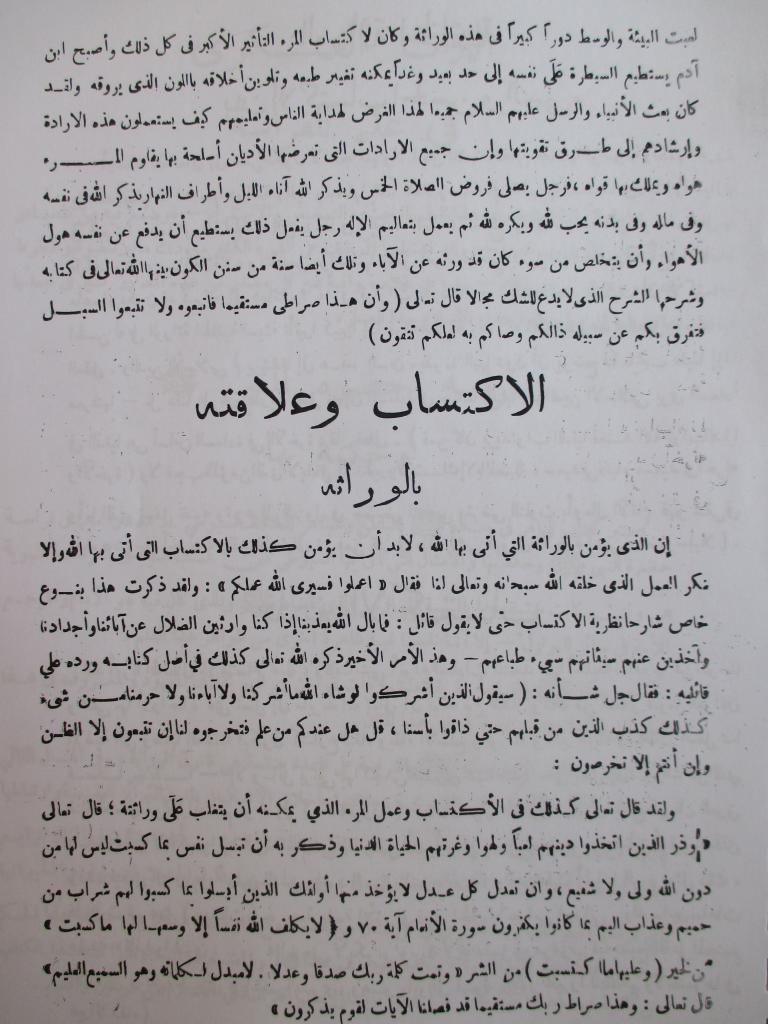 لعبت البيئة والوسط دوراً كبيراً فى هذه الوراثة وكان لاكتساب المرء التأثير الأكبر فى كل ذلك وأصبح ابن
آدم يستطيع السيطرة على نفسه إلى حد بعيد وغدا يمكنه تغيير طبعه وتلوين أخلاقه باللون الذى يروقه ولقد
كان بعث الأنبياء والرسل عليهم السلام جميعا لهذا الغرض لهداية الناس وتعليمهم كيف يستعملون هذه الارادة
وإرشادهم إلى طرق تقويتها وإن جميع الارادات التى تعرضها الأديان أسلحة بها يقاوم المرء
هواه ويملك بها قواه ، فرجل يصلى فروض الصلاة الخمس ويذكر الله آناء الليل وأطراف النهار يذكر الله فى نفسه
وفى ماله وفى بدنه يحب لله ويكره لله ثم يعمل بتعاليم الإله رجل يفعل ذلك يستطيع أن يدفع عن نفسه هول
الأهواء وأن يتخلص من سوء كان قد ورثه عن الآباء وتلك أيضا سنة من سنن الكون بينها الله تعالى فى كتابه
وشرحها الشرح الذى لا يدع للشك مجالا قال تعالى ( وأن هذا صراطى مستقيما فاتبعوه ولا تتبعوا السبل
فتفرق بكم عن سبيله ذالكم وصاكم به لعلكم تتقون )
الاكتساب وعلاقته
بالوراثه
إن الذى يؤمن بالوراثة التي أتى بها الله ، لابد أن يؤمن كذلك بالاكتساب التى أتى بها الله وإلا
فكر العمل الذى خلقه الله سبحانه وتعالى لنا فقال « اعملوا فسيرى الله عملكم » : ولقد ذكرت هذا بنوع
خاص شارحا نظرية الاكتساب حتى لا يقول قائل : فما بال الله يعذبنا إذا كنا وارثين الضلال عن آبائنا وأجدادنا
وآخذين عنهم سيئاتهم سيىء طباعهم – وهذ الأمر الأخير ذكره الله تعالى كذلك فى أصل كتابه ورده علي
قائليه : فقال جل شأنه : ( سيقول الذين أشركوا لو شاء الله ما أشركنا ولا آباءنا ولا حرمنا من شىء
كذلك كذب الذين من قبلهم حتي ذاقوا بأسنا ، قل هل عندكم من علم فتخرجوه لنا إن تتبعون إلا الظن
وإن أنتم إلا تخرصون :
ولقد قال تعالى كذلك فى الأكتساب وعمل المرء الذي يمكنه أن يتغلب على وراثتة ؛ قال تعالى
« وذر الذين اتخذوا دينهم لعباً ولهوا وغرتهم الحياة الدنيا وذكر به أن تبسل نفس بما كسبت ليس لها من
دون الله ولى ولا شفيع ، وان تعدل كل عدل لا يؤخذ منها أولئك الذين أبسلوا بما كسبوا لهم شراب من
حميم وعذاب اليم بما كانوا يكفرون سورة الأنعام آية ٧٠ و ( لا يكلف الله نفساً إلا وسعها لها ما كسبت »
من الخير ( وعليها ما اكتسبت ) من الشر « وتمت كلمة ربك صدقا وعدلا . لا مبدل لكلماته وهو السميع العليم »
قال تعالى : وهذا صراط ربك مستقيما قد فصلنا الآيات لقوم يذكرون »